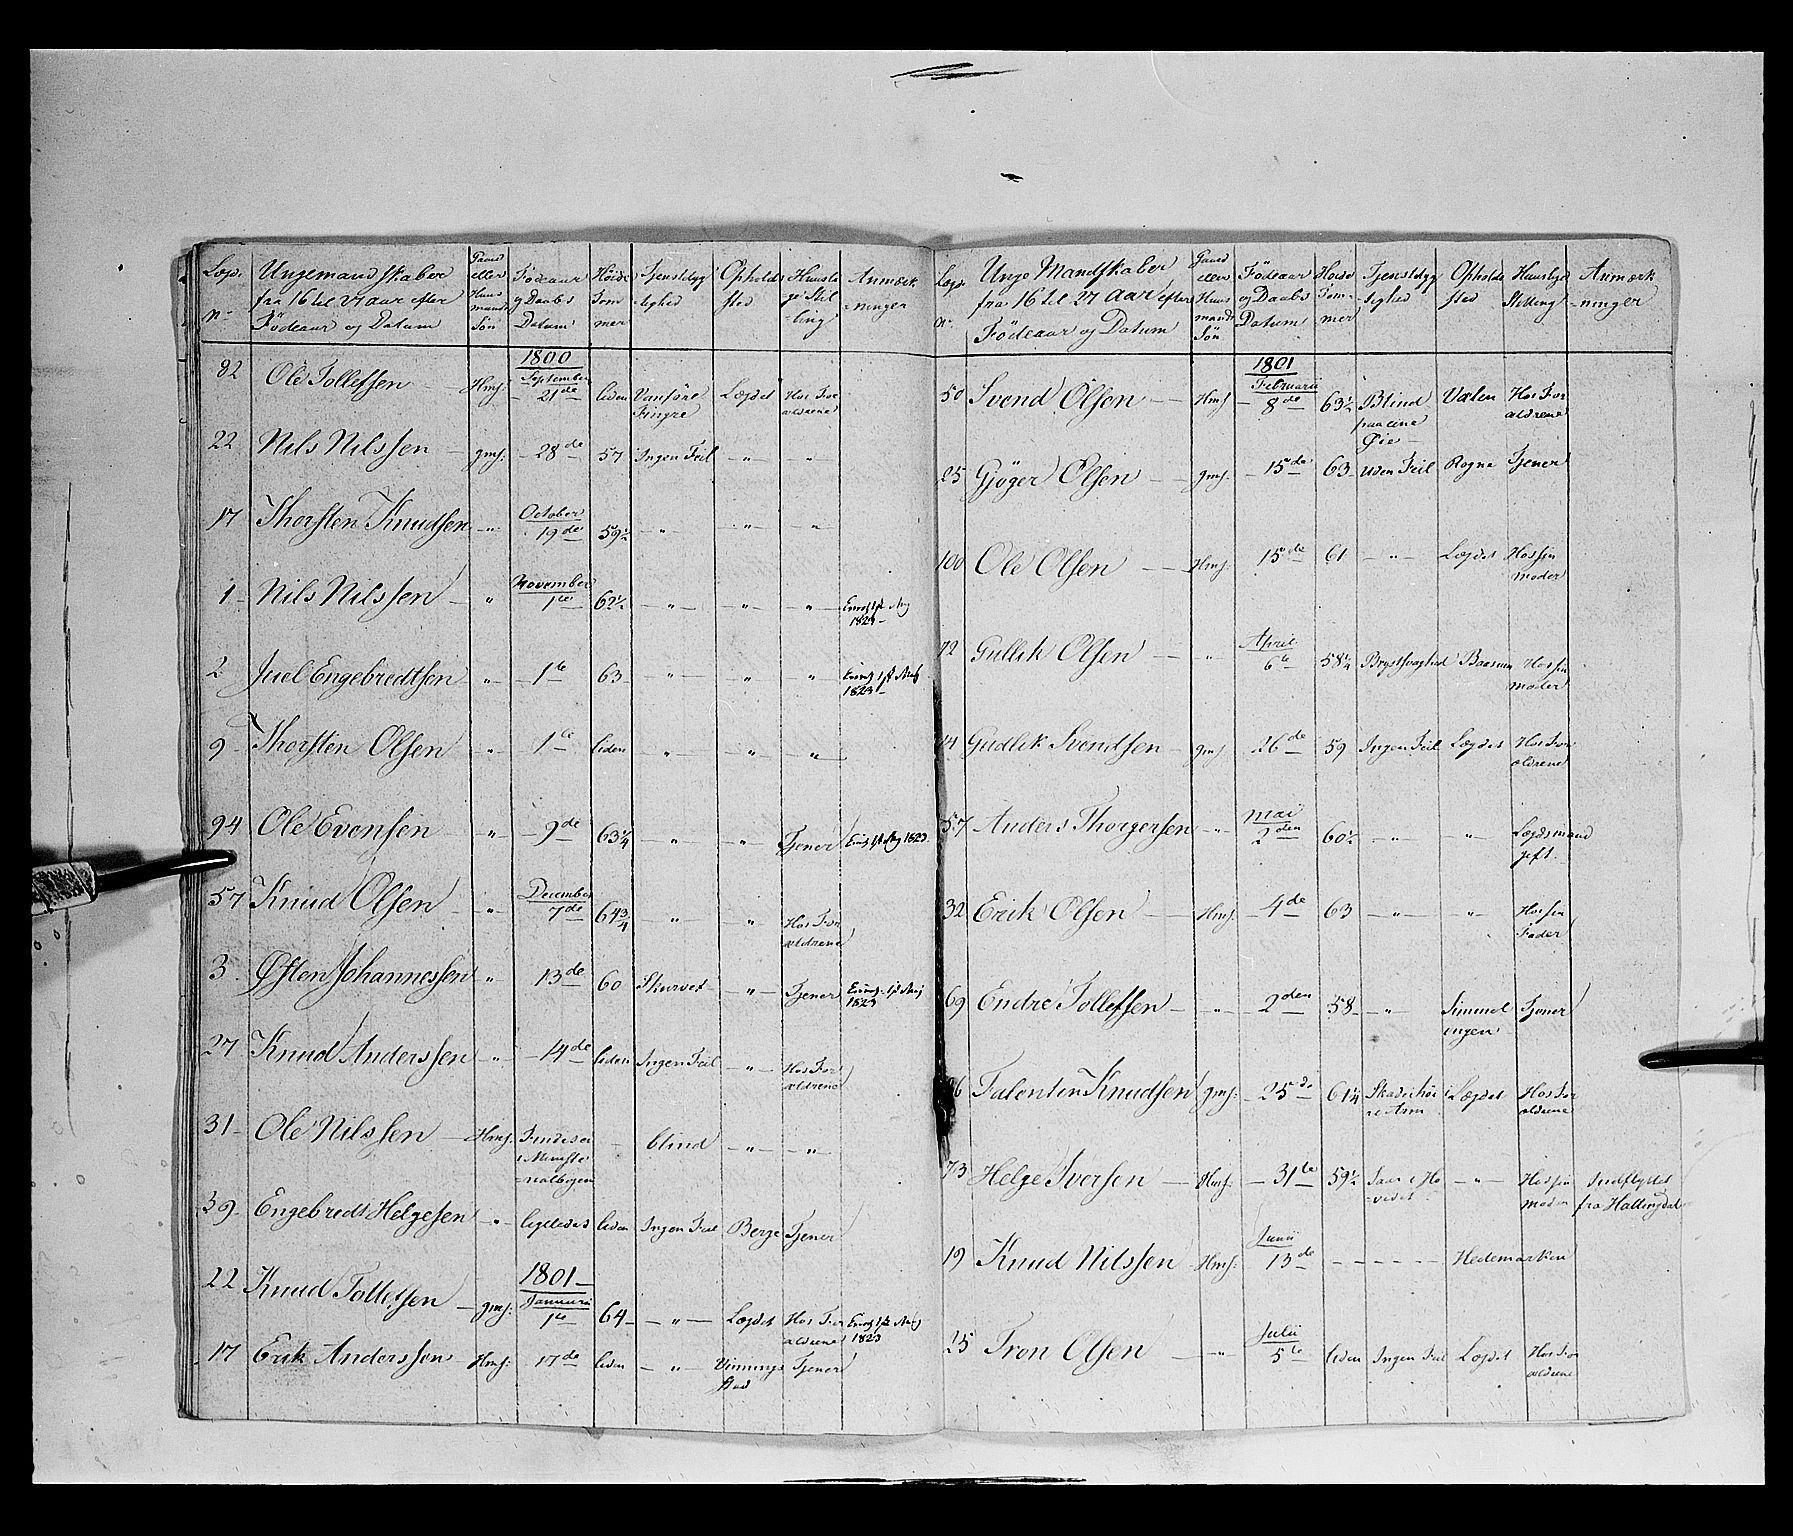 Lægs. Ungemandskaber Gaard Fødeaar Høide Tjenstdyg Ophold Huusle Anmærk
fra 16 til 27 aar efter eller og Daabs Tom -tighed sted ge Stil -ninger
N- Fødeaar og Datum Huus mands Søn Datum mer -ling
1800
82 Ole Tollefsen Hmf: September 21de liden Vanføre Fingre Lægdet Hos Forældrene
22 Nils Nilssen gmf. 28de 57 Ingen Feil - " - - " -
17 Thorsten Knudsen - " - October 19de 59½ - " - - " - - " -
1 Nils Nilssen - " - November 1te 62½ - " - - " - - " - 1823
2 Juel Engebredtsen - " - 1te 63 - " - - " - - " - 1823
9 Thorsten Olsen - " - 1te liden - " - - " - - " -
94 Ole Evensen - " - 9de 63¼ - " - - " - Tjener 1823
57 Knud Olsen - " - December 7de 64¾ - " - - " - Hos Forældrene
3 Østen Johannessen - " - 13de 60 Skurvet - " - Tjener 1823
27 Knud Anderssen - " - 14de liden Ingen Feil - " - Hos Forældrene
31 Ole Nilssen Hmf: Findes ei i Ministerialbogen - blind - " - - " -
39 Engebredt Helgesen - " - ligeledes liden Ingen Feil Berge Tjener
1801
22 Knud Tollefsen gmf: Januarii 1te 64 - " - Lægdet Hos Forældrene 1823
17 Erik Anderssen Hmf: 17de liden - " - Vinnings stad Tjener
Lægs Unge Mandskaber Gaard Fødeaar Høide Tjenstdyg Opholds Huuslige Anmærk
fra 16 til 27 aar efter eller og Daabs Tom- -tighed sted Stilling -ninger
N. Fødeaar og Datum Huus mands Søn Datum mer
1801
50 Svend Olsen Hmf Februarii 8de 63½ Blind paa eene Øie Valen Hos Forældrene
25 Gjøger Olsen gmf. 15de 63 Uden Feil Rogne Tjener
100 Ole Olsen Hmf. 15de 61 - " - Lægdet Hos sin moder
72 Gullik Olsen - " - April 6te 58¼ Brystsvaghed Baasum Hos sin moder
14 Gudlik Svendsen gmf. 26de 59 Ingen Feil Lægdet Hos Forældrene
57 Anders Thorgersen - " - Mai 2den 60½ - " - - " - Lægdsmand gift.
32 Erik Olsen Hmf. 4de 63 - " - - " - Hos sin Fader
69 Endre Tollefsen - " - 2den 58 - " - Simmel ingen Tjener
Falentin Knudsen gmf: 25de 61¼ Skade i høire Arm Lægdet Hos Forældrene
73 Helge Iversen Hmf: 31te 59½ Saar i Hovedet - " - Hos sin moder Indflyttet fra Hallingdal
19 Knud Nilssen Hmf: Junii 13de - - - - - - Hedemarken
25 Tron Olsen - " - Julii 5te liden Ingen Feil Lægdet Hos Forældrene